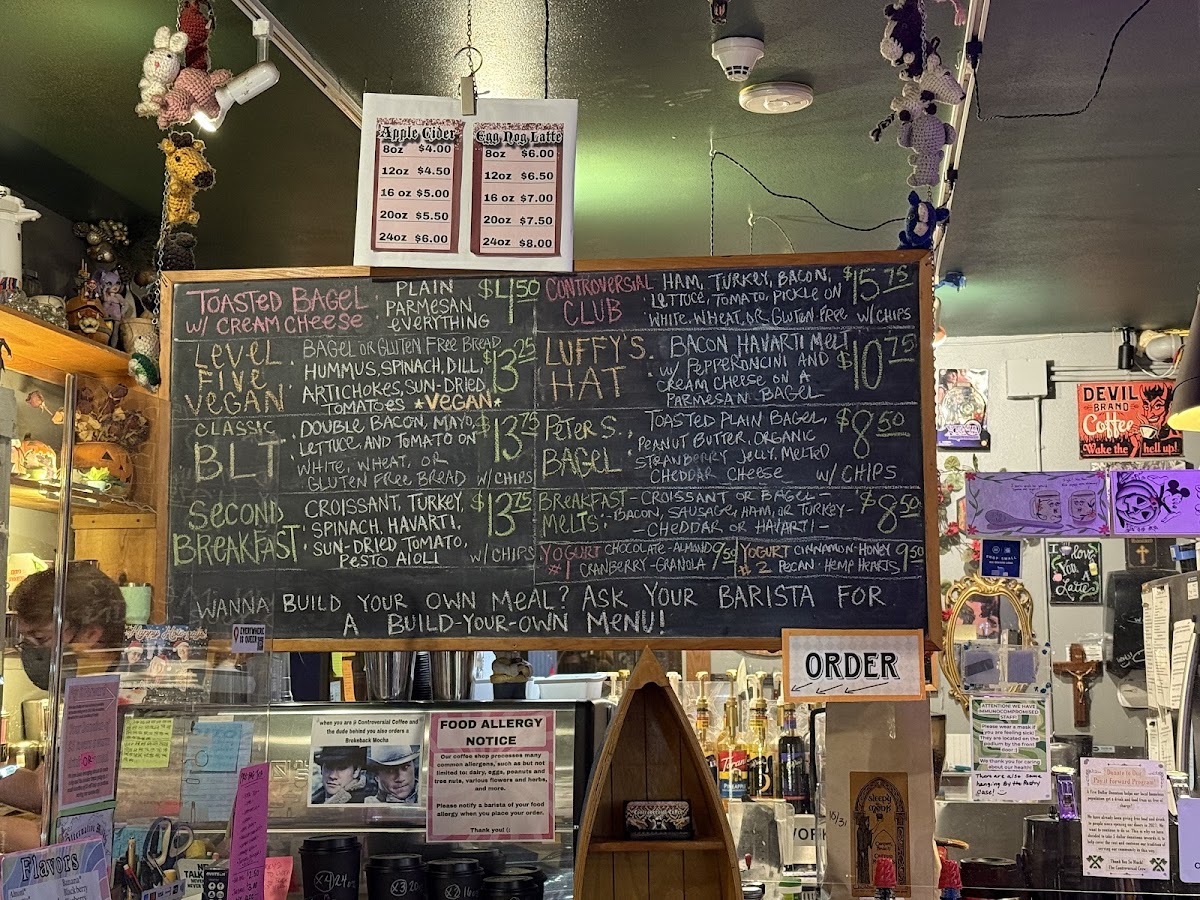 Apple Cider
8oz $4.00
12oz $4.50
16 oz $5.00
20oz $5.50
24oz $6.00
Egg Nog Latte
8oz $6.00
12oz $6.50
16 oz $7.00
20oz $7.50
24oz $8.00
TOASTED BAGEL
W/ CREAM CHEESE
PLAIN
PARMESAN
EVERYTHING
$4.50
CONTROVERSIAL
CLUB
HAM, TURKEY, BACON,
LETTUCE, TOMATO, PICKLE ON
WHITE, WHEAT, OR GLUTEN FREE W/CHIPS
$15.75
LEVEL
FIVE
VEGAN
BAGEL OR GLUTEN FREE BREAD
HUMMUS, SPINACH, DILL,
ARTICHOKES, SUN-DRIED
TOMATOES *VEGAN*
$13.25
LUFFY'S
HAT
BACON HAVARTI MELT
W/ PEPPERONCINI AND
CREAM CHEESE ON A
PARMESAN BAGEL
$10.75
CLASSIC
BLT
DOUBLE BACON, MAYO,
LETTUCE, AND TOMATO ON
WHITE, WHEAT, OR
GLUTEN FREE BREAD W/CHIPS
$13.75
PETER S.
BAGEL
TOASTED PLAIN BAGEL,
PEANUT BUTTER, ORGANIC
STRAWBERRY JELLY, MELTED
CHEDDAR CHEESE W/CHIPS
$8.50
SECOND
BREAKFAST
CROISSANT, TURKEY,
SPINACH, HAVARTI,
SUN-DRIED TOMATO,
PESTO AIOLI W/CHIPS
$13.75
BREAKFAST
MELTS
-CROISSANT OR BAGEL-
BACON, SAUSAGE, HAM, OR TURKEY-
-CHEDDAR OR HAVARTI-
$8.50
YOGURT
#1
CHOCOLATE-ALMOND
CRANBERRY-GRANOLA
9.50
YOGURT
#2
CINNAMON-HONEY
PECAN-HEMP HEARTS
9.50
WANNA BUILD YOUR OWN MEAL? ASK YOUR BARISTA FOR
A BUILD-YOUR-OWN MENU!
DEVIL
BRAND
Coffee
Wake the hell up!
SHOP SMALL
I love
You A
Latte
EVERYWHERE
IS QUEER
ORDER
when you are @ Controversial Coffee and
the dude behind you also orders a
Brokeback Mocha
FOOD ALLERGY
NOTICE
Our coffee shop processes many
common allergens, such as but not
limited to: dairy, eggs, peanuts and
tree nuts, various flowers and herbs,
and more.
Please notify a barista of your food
allergy when you place your order.
Thank you! :)
ATTENTION WE HAVE
IMMUNOCOMPROMISED
STAFF!
Please wear a mask if
you are feeling sick!
They are located on the
podium by the front
door :)
Thank you for caring
about our health!
There are also some
hanging by the Pastry
Case! :)
Donate to Our
Pay it Forward Program!
Thank You So Much!
The Controversial Crew
Torani
sleepy
monk
10/31
Flavors
x4 24oz
x3 20
x2 16